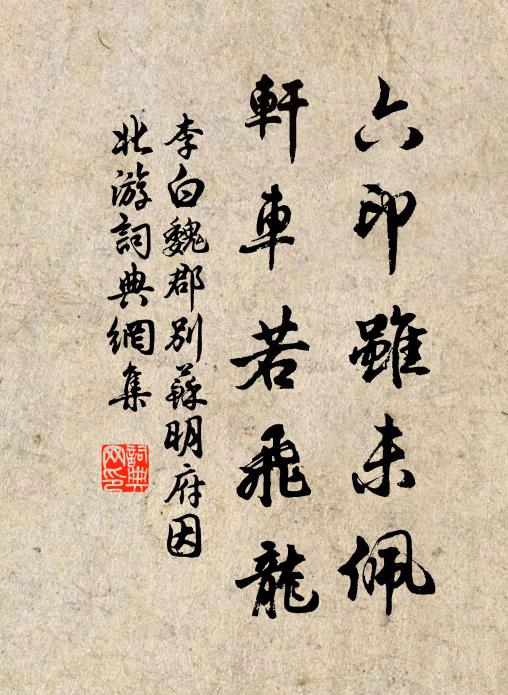 六印雖未佩
軒車若飛龍
李白魏郡別蘇明府因
北游詞典網集
詞典
网印